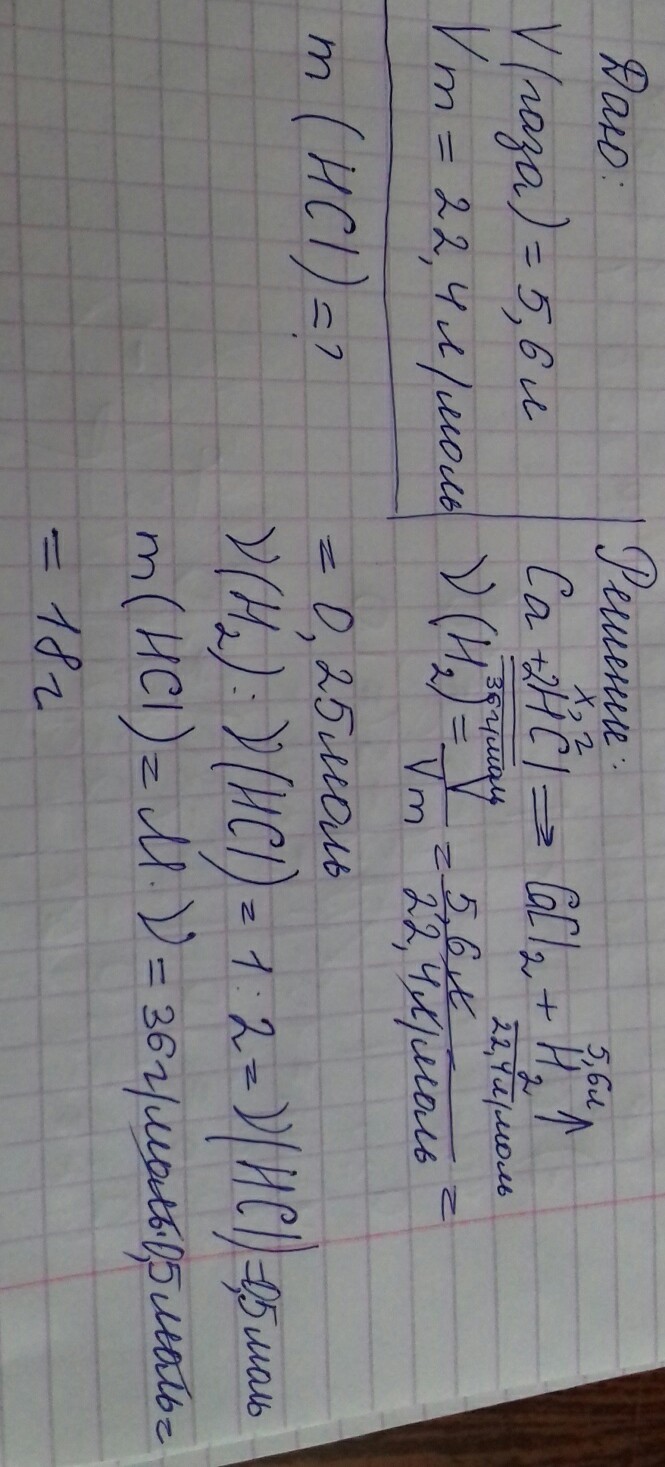 Дано:
V(газа) = 5,6 л
Vm = 22,4 л/моль
m (HCl) = ?
Решение:
x, г 5,6 л
Ca + 2HCl => CaCl2 + H2 ↑
36 г/моль 22,4 л/моль
ν(H2) = V/Vm = 5,6 л/22,4 л/моль =
= 0,25 моль
ν(H2) : ν(HCl) = 1 : 2 = ν(HCl) = 0,5 моль
m(HCl) = M · ν = 36 г/моль · 0,5 моль =
= 18 г